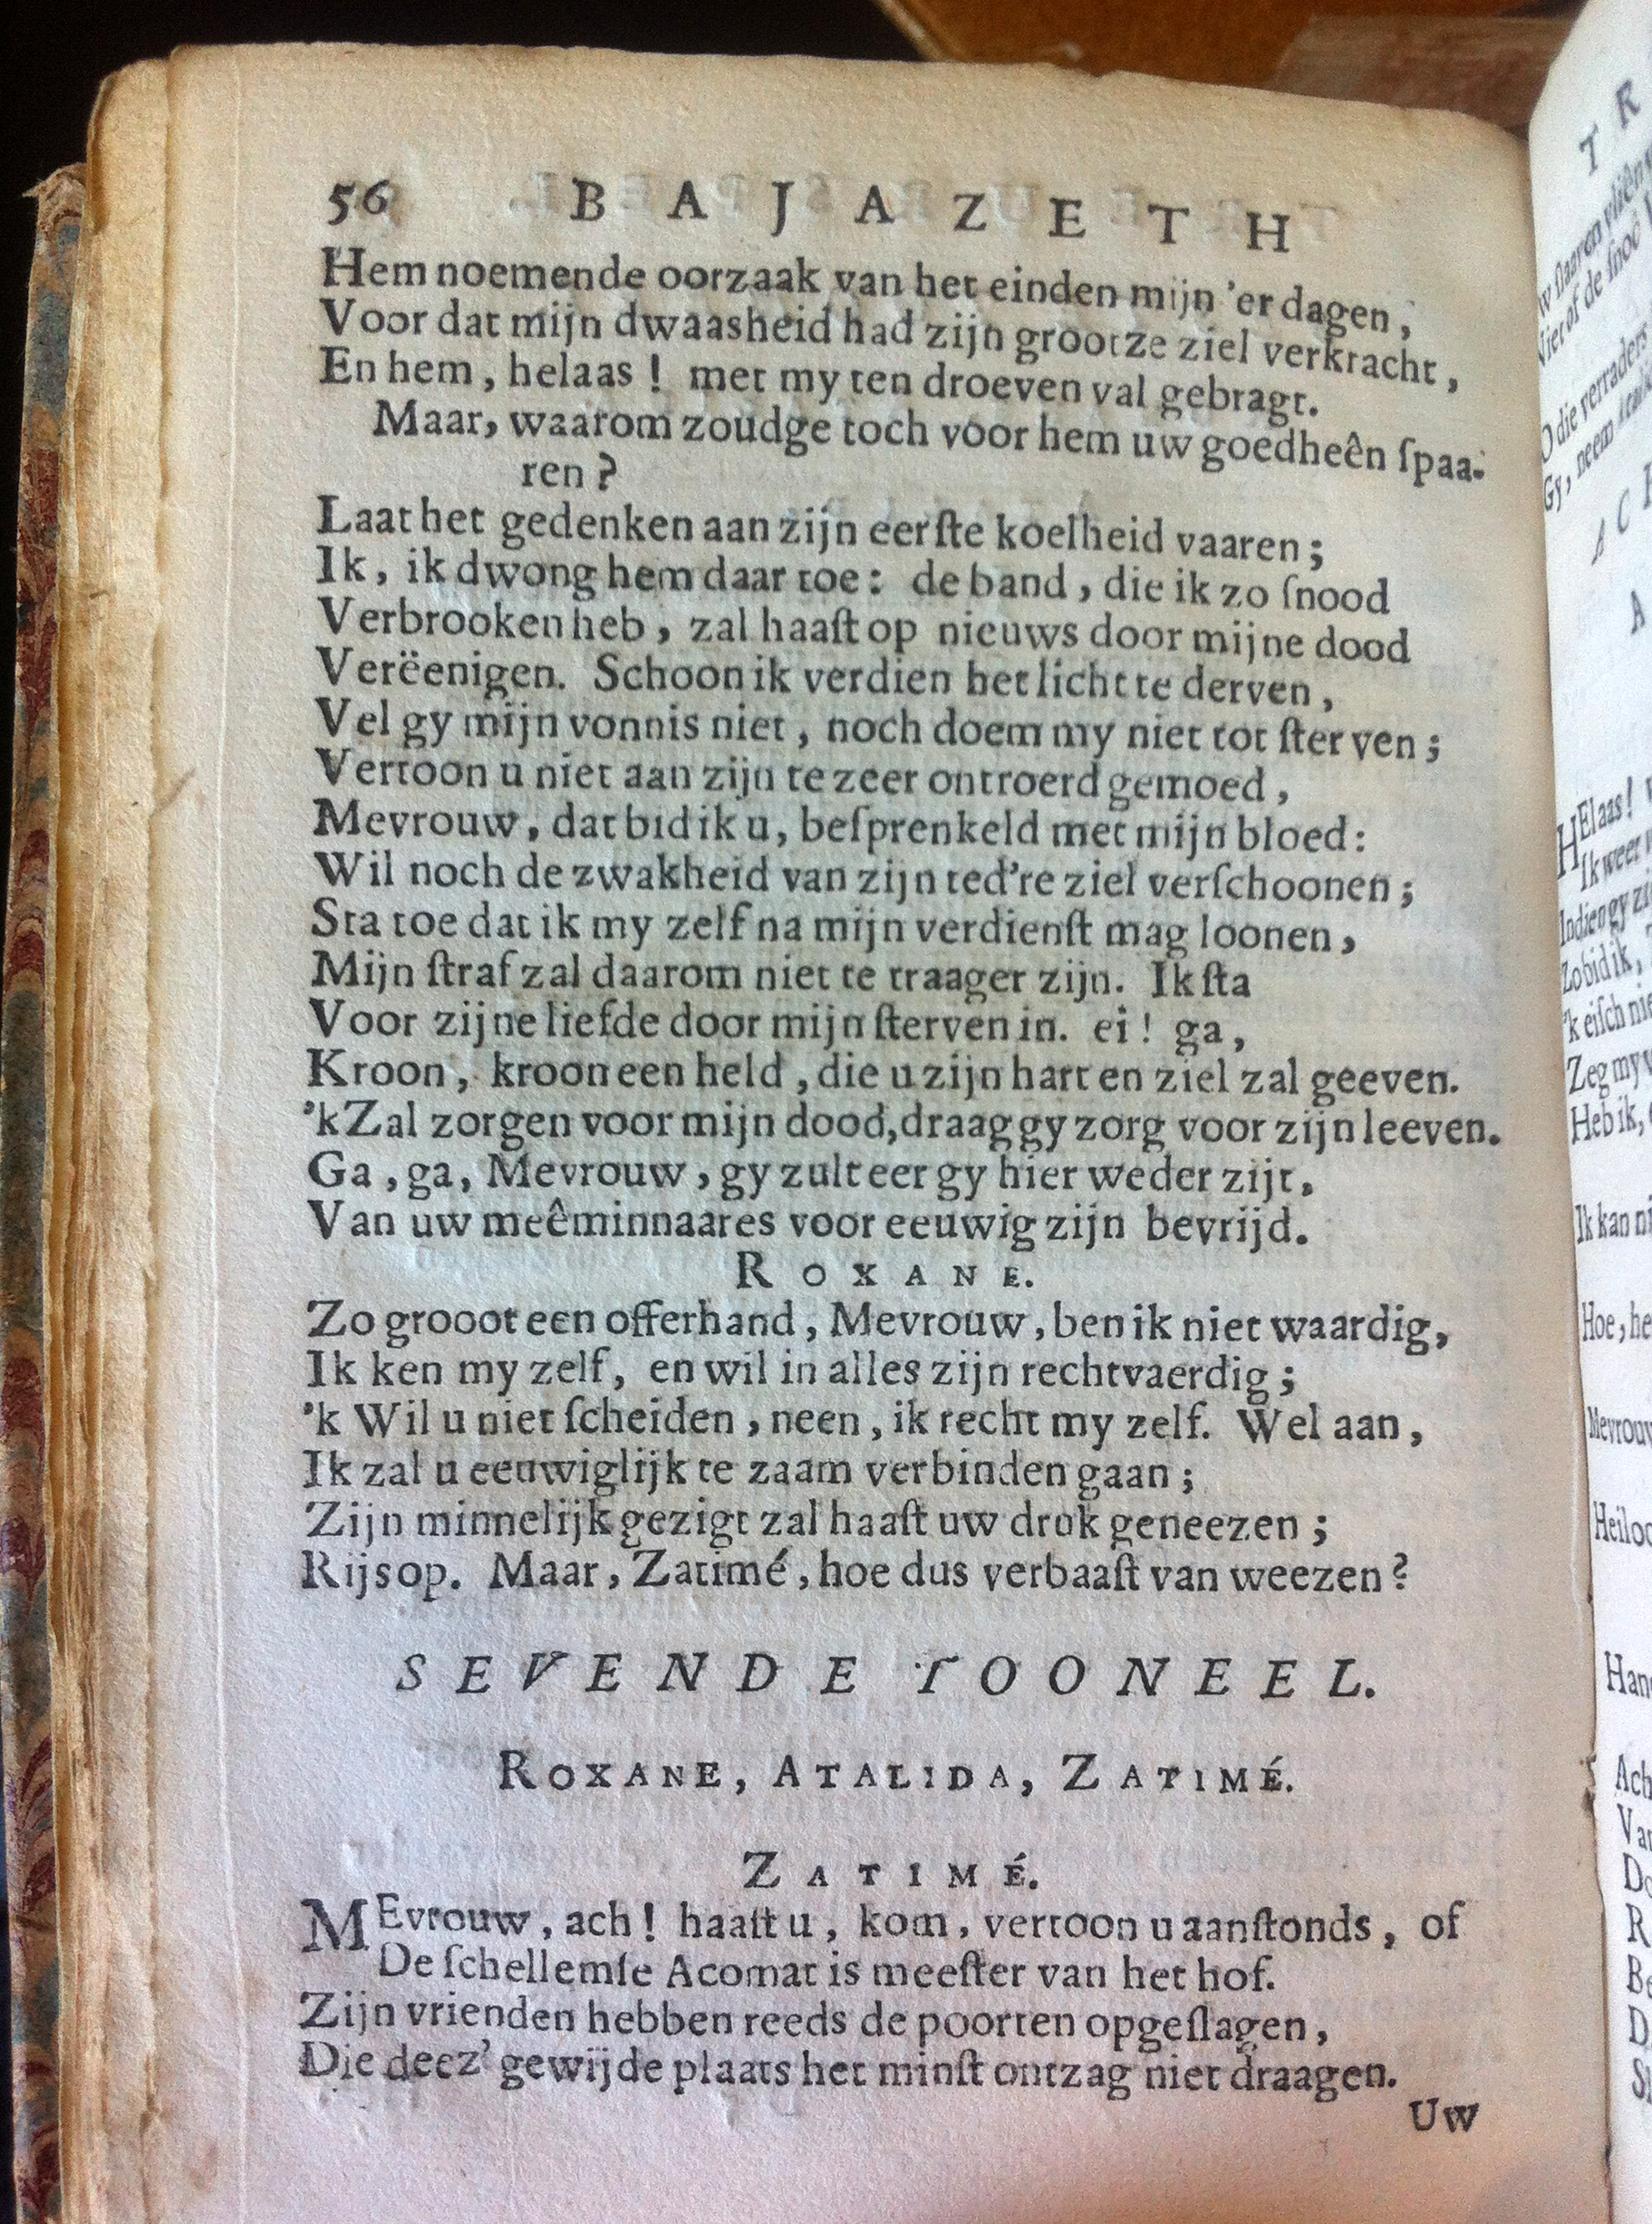 56 BAJAZETH
Hem noemende oorzaak van het einden mijn 'er dagen,
Voor dat mijn dwaasheid had zijn grootze ziel verkracht,
En hem, helaas! met my ten droeven val gebragt.
Maar, waarom zoudge toch voor hem uw goedheên ſpaa-
ren?
Laat het gedenken aan zijn eerſte koelheid vaaren;
Ik, ik dwong hem daar toe: de band, die ik zo ſnood
Verbrooken heb, zal haaſt op nieuws door mijne dood
Verëenigen. Schoon ik verdien het licht te derven,
Vel gy mijn vonnis niet, noch doem my niet tot ſterven;
Vertoon u niet aan zijn te zeer ontroerd gemoed,
Mevrouw, dat bid ik u, beſprenkeld met mijn bloed:
Wil noch de zwakheid van zijn ted're ziel verſchoonen;
Sta toe dat ik my zelf na mijn verdienſt mag loonen,
Mijn ſtraf zal daarom niet te traager zijn. Ik ſta
Voor zijne liefde door mijn ſterven in. ei! ga,
Kroon, kroon een held, die u zijn hart en ziel zal geeven.
'k Zal zorgen voor mijn dood, draag gy zorg voor zijn leeven.
Ga, ga, Mevrouw, gy zult eer gy hier weder zijt,
Van uw meêminnaares voor eeuwig zijn bevrijd.
ROXANE.
Zo grooot een offerhand, Mevrouw, ben ik niet waardig,
Ik ken my zelf, en wil in alles zijn rechtvaerdig;
'k Wil u niet ſcheiden, neen, ik recht my zelf. Wel aan,
Ik zal u eeuwiglijk te zaam verbinden gaan;
Zijn minnelijk gezigt zal haaſt uw druk geneezen;
Rijs op. Maar, Zatimé, hoe dus verbaaſt van weezen?
SEVENDE TOONEEL.
ROXANE, ATALIDA, ZATIMÉ.
ZATIMÉ.
MEvrouw, ach! haaſt u, kom, vertoon u aanſtonds, of
De ſchellemſe Acomat is meeſter van het hof.
Zijn vrienden hebben reeds de poorten opgeſlagen,
Die deez' gewijde plaats het minſt ontzag niet draagen.
Uw
T R
die verraders
Gy, neem
A
HElaas!
Ik weet
Indien gy
Zo bid ik,
'k eiſch
Zeg my
Heb ik,
Ik kan
Hoe, he
Mevrouw